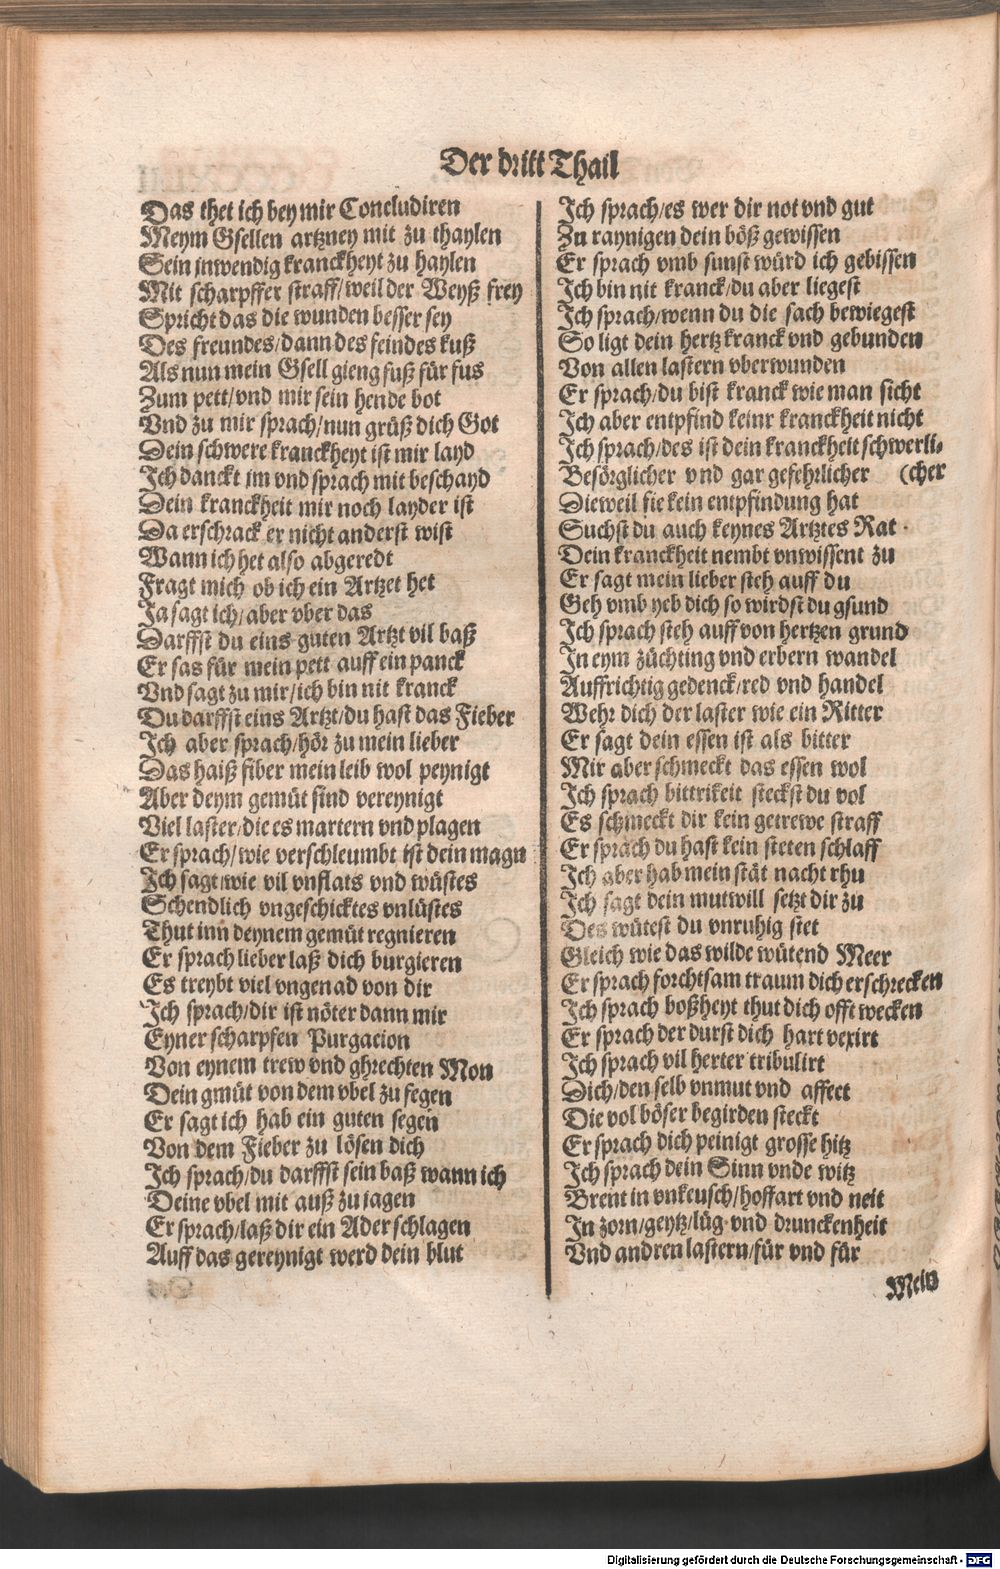 Der dritt Thail
Das thet ich bey mir Concludiren
Meym Gsellen artzney mit zu thaylen
Sein inwendig kranckheyt zu haylen
Mit scharpffer straff/weil der Weyß frey
Spricht das die wunden besser sey
Des freundes/dann des feindes kuß
Als nun mein Gsell gieng fuß für fus
Zum pett/vnd mir sein hende bot
Vnd zu mir sprach/nun grüß dich Got
Dein schwere kranckheyt ist mir layd
Ich danckt im vnd sprach mit beschayd
Dein kranckheit mir noch layder ist
Da erschrack er nicht anderst wist
Wann ich het also abgeredt
Fragt mich ob ich ein Artzet het
Ja sagt ich/aber vber das
Darffst du eins guten Artzt vil baß
Er sas für mein pett auff ein panck
Vnd sagt zu mir/ich bin nit kranck
Du darffst eins Artzt/du hast das Fieber
Ich aber sprach/hör zu mein lieber
Das haiß fiber mein leib wol peynigt
Aber deym gemüt sind vereynigt
Viel laster/die es martern vnd plagen
Er sprach/wie verschleumbt ist dein magn
Ich sagt/wie vil vnflats vnd wüstes
Schendlich vngeschicktes vnlüstes
Thut inn deynem gemüt regnieren
Er sprach lieber laß dich burgieren
Es treybt viel vngenad von dir
Ich sprach/dir ist nöter dann mir
Eyner scharpfen Purgacion
Von eynem trew vnd ghrechten Mon
Dein gmüt von dem vbel zu fegen
Er sagt ich hab ein guten segen
Von dem Fieber zu lösen dich
Ich sprach/du darffst sein baß wann ich
Deine vbel mit auß zu jagen
Er sprach/laß dir ein Ader schlagen
Auff das gereynigt werd dein blut
Ich sprach/es wer dir not vnd gut
Zu raynigen dein böß gewissen
Er sprach vmb sunst würd ich gebissen
Ich bin nit kranck/du aber liegest
Ich sprach/wenn du die sach bewiegest
So ligt dein hertz kranck vnd gebunden
Von allen lastern vberwunden
Er sprach/du bist kranck wie man sicht
Ich aber entpfind keinr kranckheit nicht
Ich sprach/des ist dein kranckheit schwerli-
Besörglicher vnd gar gefehrlicher (cher
Dieweil sie kein entpfindung hat
Suchst du auch keynes Artztes Rat
Dein kranckheit nembt vnwissent zu
Er sagt mein lieber steh auff du
Geh vmb yeb dich so wirdst du gsund
Ich sprach steh auff von hertzen grund
In eym züchting vnd erbern wandel
Auffrichtig gedenck/red vnd handel
Wehr dich der laster wie ein Ritter
Er sagt dein essen ist als bitter
Mir aber schmeckt das essen wol
Ich sprach bittrikeit steckst du vol
Es schmeckt dir kein getrewe straff
Er sprach du hast kein steten schlaff
Ich aber hab mein stät nacht rhu
Ich sagt dein mutwill setzt dir zu
Des wütest du vnruhig stet
Gleich wie das wilde wütend Meer
Er sprach forchtsam traum dich erschrecken
Ich sprach boßheyt thut dich offt wecken
Er sprach der durst dich hart vexirt
Ich sprach vil herter tribulirt
Dich/den selb vnmut vnd affect
Die vol böser begirden steckt
Er sprach dich peinigt grosse hitz
Ich sprach dein Sinn vnde witz
Brent in vnkeusch/hoffart vnd neit
In zorn/geytz/lüg vnd drunckenheit
Vnd andren lastern/für vnd für
Mein
Digitalisierung gefördert durch die Deutsche Forschungsgemeinschaft - DFG